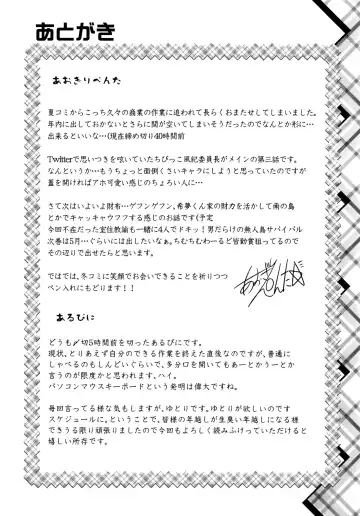 あとがき
あおきりぺんた
夏コミからこっち久々の商業の作業に追われて長らくおまたせしてしまいました。
年内に出しておかないとさらに間が空いてしまいそうだったのでなんとか形に…
出来るといいな…(現在締め切り40時間前
Twitterで思いつきを呟いていたちびっこ風紀委員長がメインの第三話です。
なんというか…もうちょっと面倒くさいキャラにしようと思っていたのですが
蓋を開ければアホ可愛い感じのちょろい人に…
さて次はいよいよ財布…ゲフンゲフン、希夢くん家の財力を活かして南の島
とかでキャッキャウフフする感じのお話です(予定
今回不在だった室住教諭も一緒に4人でドキッ！男だらけの無人島サバイバル
次巻は5月…ぐらいには出したいなぁ。ちむちむわーるど皆勤賞狙ってるので
その辺りで出せたらと思います。
ではでは、冬コミに笑顔でお会いできることを祈りつつ
ペン入れにもどります！
あるびに
どうも〆切5時間前を切ったあるびにです。
現状、とりあえず自分のできる作業を終えた直後なのですが、普通に
しゃべるのもしんどいぐらいで、多分口を開いてもあーとかうーとか
言うのが限度かと思われます、ハイ。
パソコンマウスキーボードという発明は偉大ですね。
毎回言ってる様な気もしますが、ゆとりです。ゆとりが欲しいのです
スケジュールに。ということで、皆様の年越しが生臭い年越しになる様
できうる限り頑張りましたので今回もよろしく読みふけっていただけると
嬉しい所存です。